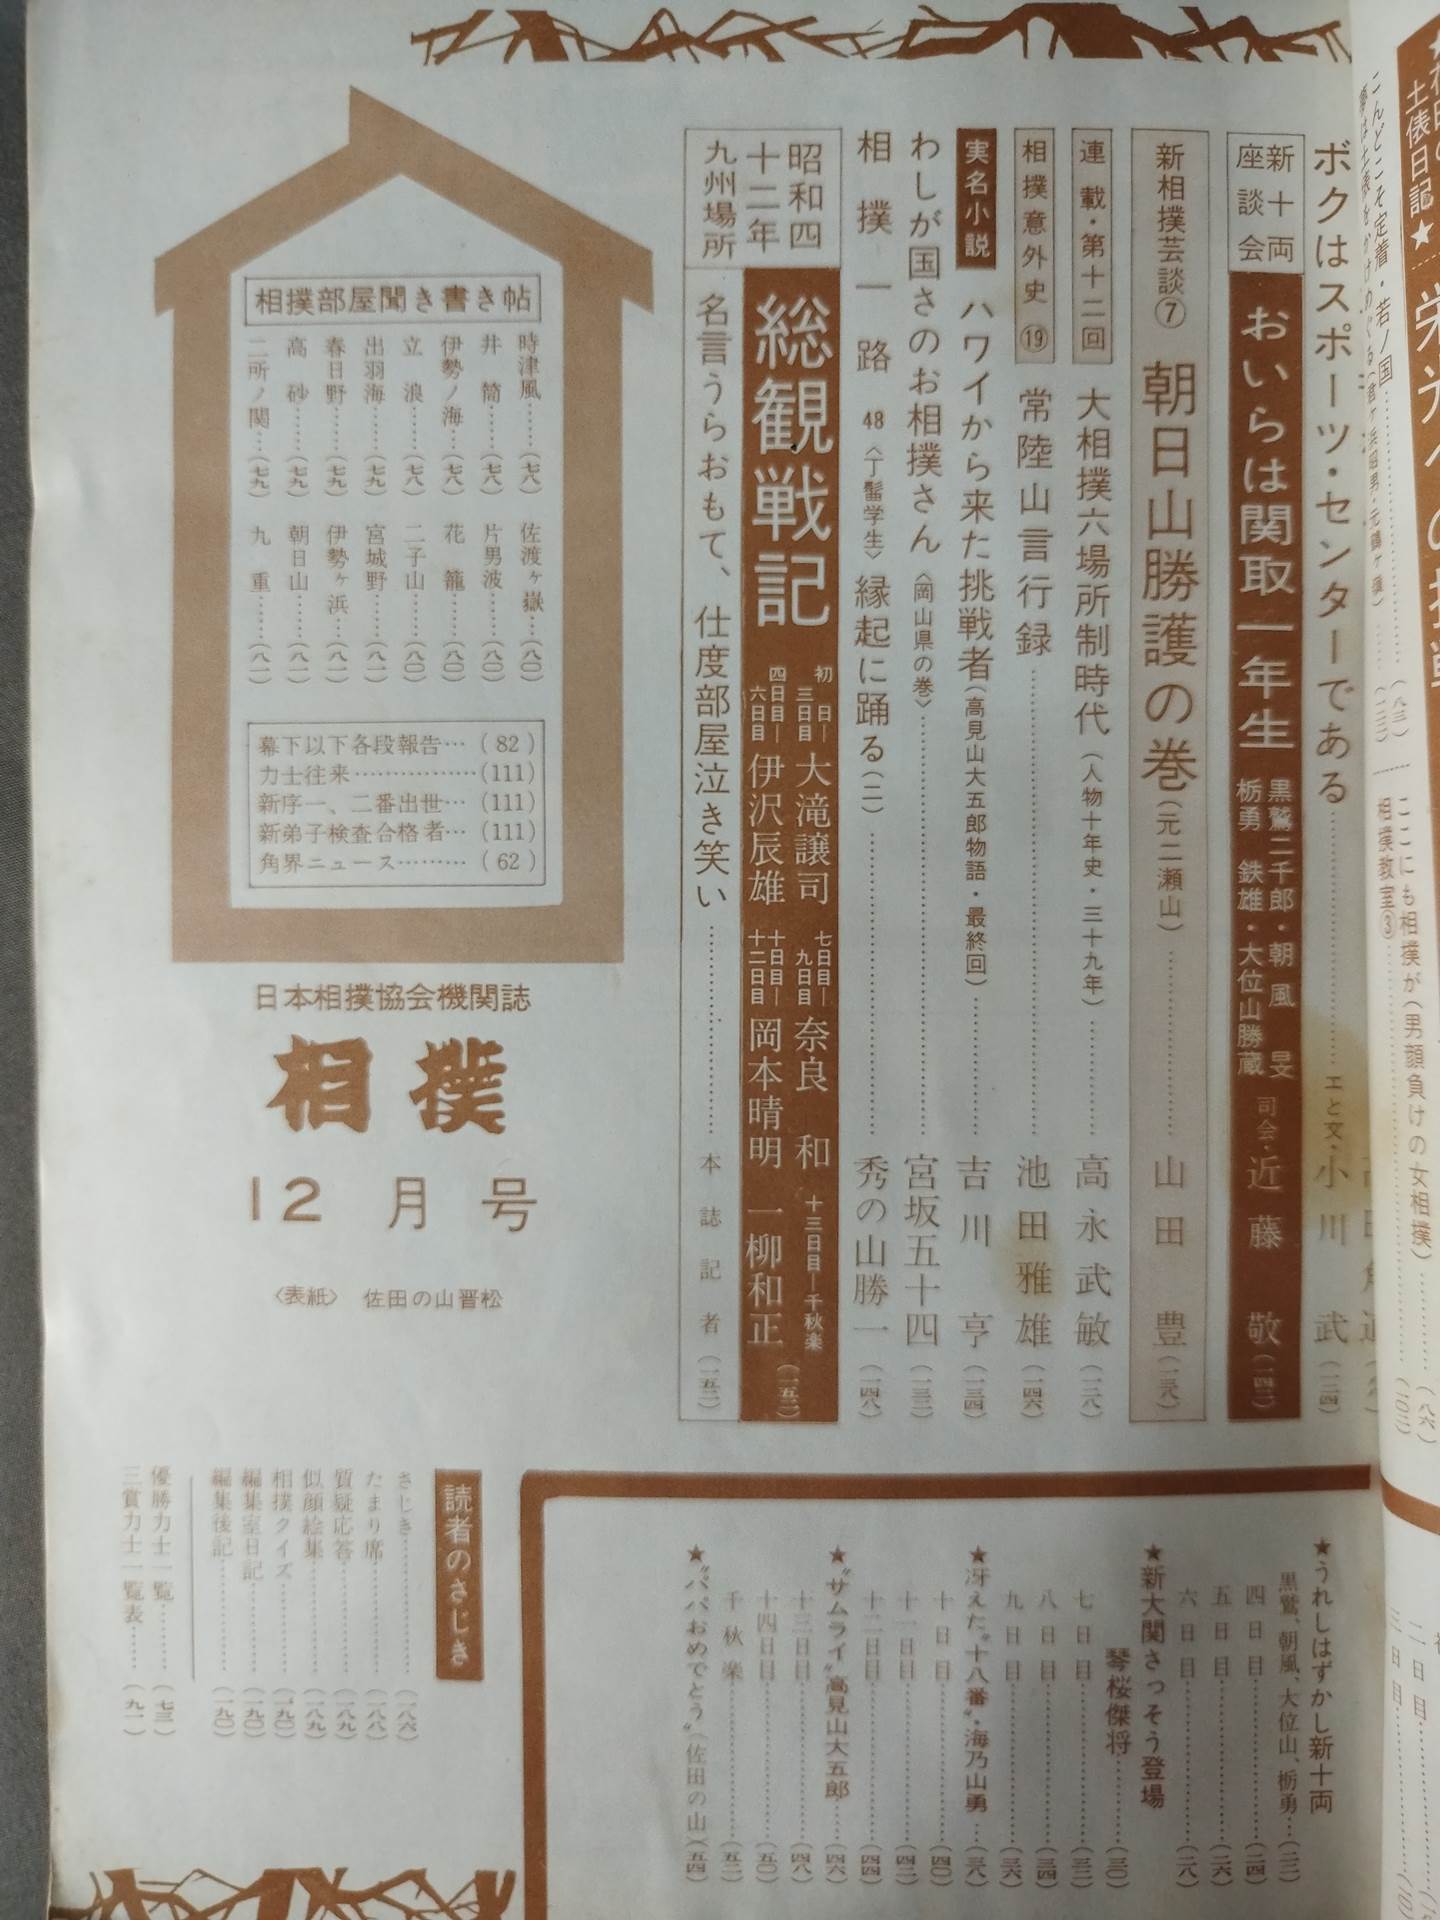 土俵日記★
こんどこそ定着・若ノ国
ここにも相撲が(男顔負けの女相撲)
相撲教室③
ボクはスポーツ・センターである
エと文・小川 武(一二四)
新十両座談会
おいらは関取一年生
黒鷲二千郎・朝風 旻
栃勇 鉄雄・大位山勝蔵
司会・近藤 敬(一四二)
新相撲芸談⑦ 朝日山勝護の巻(元二瀬山) 山田 豊(一三八)
連載・第十二回 大相撲六場所制時代(人物十年史・三十九年) 高永武敏(一二八)
相撲意外史⑲ 常陸山言行録 池田雅雄(一四六)
実名小説 ハワイから来た挑戦者(高見山大五郎物語・最終回) 吉川 亨(一三四)
わしが国さのお相撲さん〈岡山県の巻〉 宮坂五十四(一三三)
相撲一路 48〈丁髷学生〉縁起に踊る(二) 秀の山勝一(一四八)
昭和四十二年九州場所
総観戦記
初日―三日目 大滝譲司
四日目―六日目 伊沢辰雄
七日目―九日目 奈良 和
十日目―十二日目 岡本晴明
十三日目―千秋楽 一柳和正
(一五二)
名言うらおもて、仕度部屋泣き笑い 本誌記者(一五二)
相撲部屋聞き書き帖
時津風……(七八)
井筒……(七八)
伊勢ノ海…(七八)
立浪……(七八)
出羽海……(七九)
春日野……(七九)
高砂……(七九)
二所ノ関…(七九)
佐渡ヶ嶽…(八〇)
片男波……(八〇)
花籠……(八〇)
二子山……(八〇)
宮城野……(八一)
伊勢ヶ浜…(八一)
朝日山……(八一)
九重……(八一)
幕下以下各段報告…(82)
力士往来………………(111)
新序一、二番出世…(111)
新弟子検査合格者…(111)
角界ニュース………(62)
日本相撲協会機関誌
相撲
12月号
〈表紙〉 佐田の山晋松
★うれしはずかし新十両
黒鷲、朝風、大位山、栃勇…(二二)
四日目……(二四)
五日目……(二六)
六日目……(二八)
★新大関さっそう登場
琴桜傑将……(三〇)
七日目……(三二)
八日目……(三四)
九日目……(三六)
★冴えた“十八番”・海乃山勇…(三八)
十日目……(四〇)
十一日目……(四二)
十二日目……(四四)
★“サムライ”高見山大五郎……(四六)
十三日目……(四八)
十四日目……(五〇)
千秋楽……(五二)
★“パパおめでとう”(佐田の山)(五四)
読者のさじき
さじき……(一八六)
たまり席……(一八八)
質疑応答……(一八九)
似顔絵集……(一八九)
相撲クイズ……(一九〇)
編集室日記……(一九〇)
編集後記……(一九〇)
優勝力士一覧……(七三)
三賞力士一覧表……(九一)
二日目
三日目